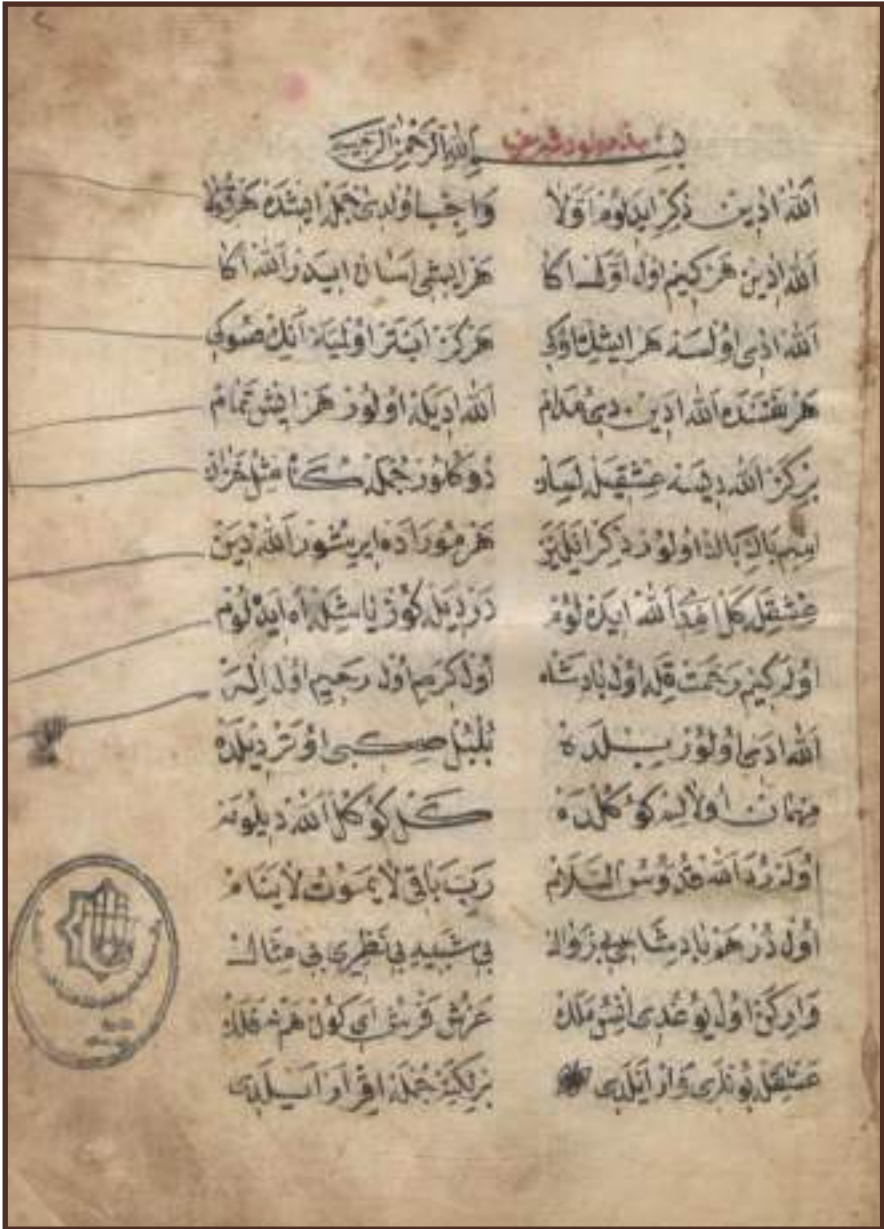 ٢
بسم الله الرحمن الرحيم
هذا مولود شريف
الله ادين ذكر ايدلوم اولا واجب اولدى جمله ايشده هر قولا
الله ادين هر كيم اول اولسه اكا هر ايشى اسان ايدر الله اكا
الله ادى اولسه هر ايشك اوكى هركز ابتر اولميه انك صوكى
هر نفسده الله ادين دى مدام الله اديله اولور هر ايش تمام
بركز الله ديسه عشقيله لسان دوكلور جمله كناه مثل خزان
اسم پاكن پاك اولور ذكر ايلين هر مراده ايريشور الله دين
عشقله كل امدى الله ايده لوم درديله كوز ياشله اه ايده لوم
اوله كيم رحمت قله اول پادشاه اول كريم اول رحيم اول اله
الله ادى اولور ديلده بلبل كبى اوتر ديلده
مهمان اولالى كوكلده كل كوكل الله ديلونه
اولدر الله قدوس السلام رب باقى لا يموت لا ينام
اول در هم پادشاه بى زوال بى شبيه بى نظير بى مثال
واركن اول يوغدى انس ملك عرش فرش اى كون هم نه فلك
عشقله بونلرى وار ايلدى برلكينه جمله اقرار ايلدى